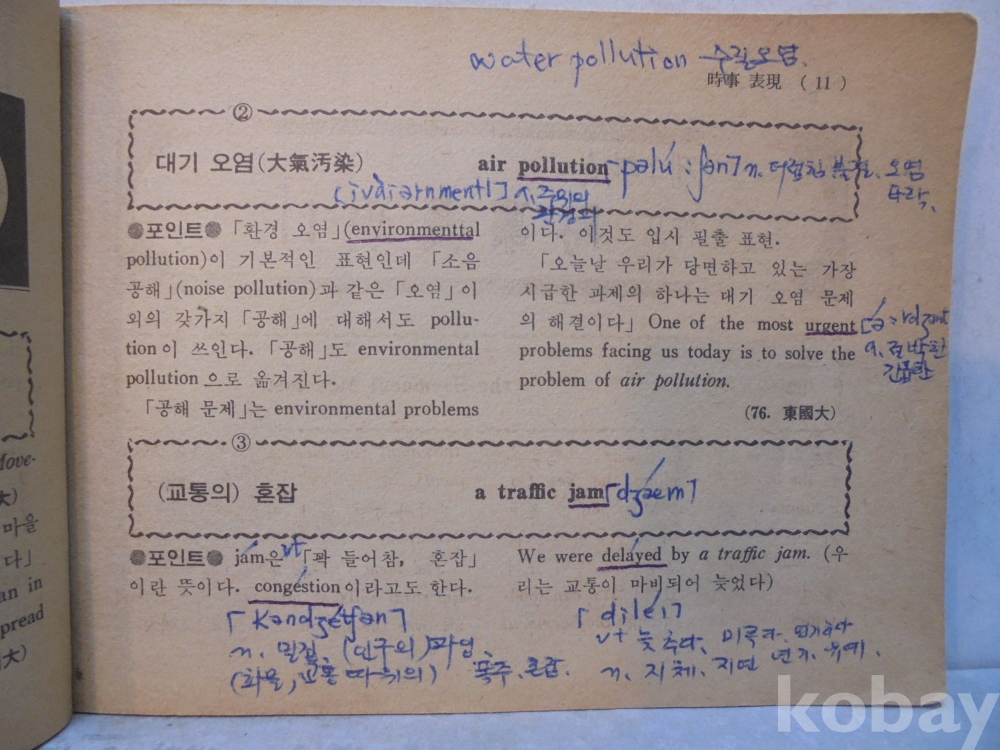 water pollution 수질오염.
時事 表現 ( 11 )
②
대기 오염(大氣汚染) air pollution
n. 더럽힘 불결, 오염
타락,
a. 주위의
환경의
●포인트● 「환경 오염」(environmenttal
pollution)이 기본적인 표현인데 「소음
공해」(noise pollution)과 같은 「오염」이
외의 갖가지 「공해」에 대해서도 pollu-
tion이 쓰인다. 「공해」도 environmental
pollution으로 옮겨진다.
「공해 문제」는 environmental problems
이다. 이것도 입시 필출 표현.
「오늘날 우리가 당면하고 있는 가장
시급한 과제의 하나는 대기 오염 문제
의 해결이다」 One of the most urgent
problems facing us today is to solve the
problem of air pollution.
(76. 東國大)
a. 절박한
긴급한
③
(교통의) 혼잡 a traffic jam [dʒæm]
●포인트● jam은 「꽉 들어참, 혼잡」
vt
이란 뜻이다. congestion이라고도 한다.
[kəndʒétʃən]
n. 밀집, (인구의) 과잉
(화물, 교통 따위의) 폭주, 혼잡.
We were delayed by a traffic jam. (우
리는 교통이 마비되어 늦었다)
[diléi]
vt 늦추다, 미루다, 연기하다
n, 지체, 지연 연기, 유예.
Move-
大)
마을
다」
an in
pread
大)
kobay